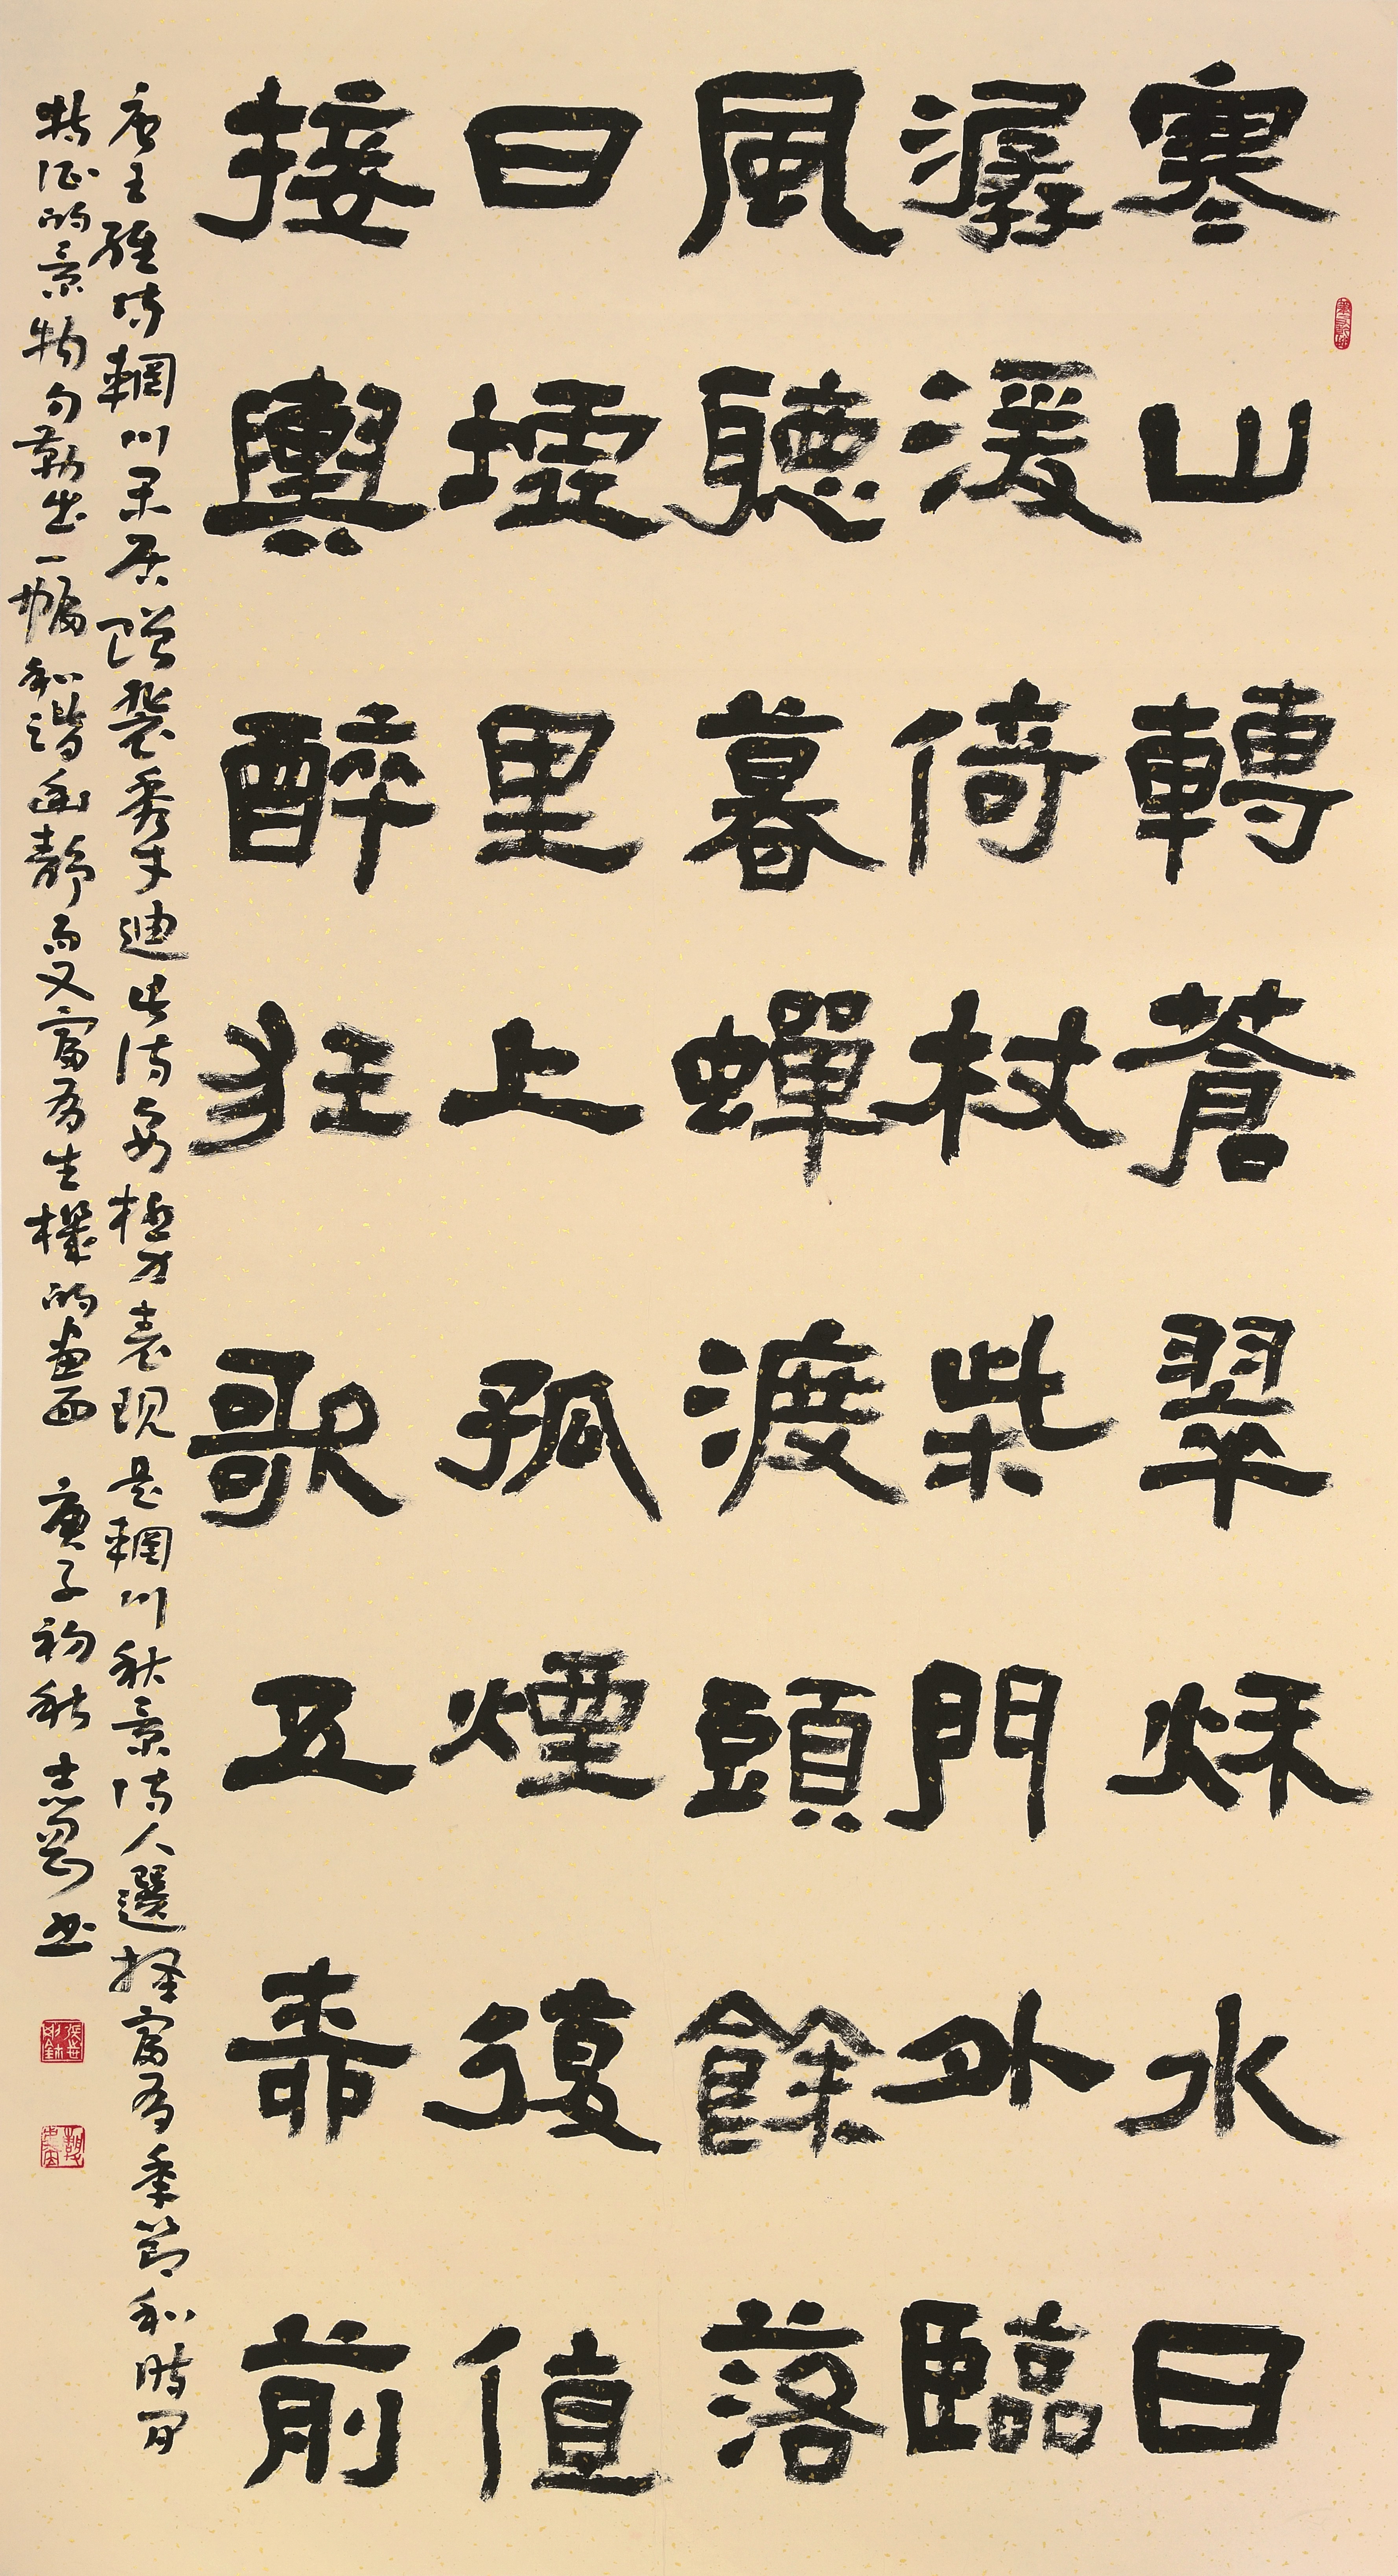 寒山轉蒼翠秌水日
潺湲倚杖柴門外臨
風聽暮蟬渡頭餘落
日墟里上孤煙復值
接輿醉狂歌五柳前
唐王維诗輞川闲居赠裴秀才迪此诗要极力表现是輞川秋景诗人選择富有季節和时间
特征的景物勾勒出一幅和谐幽静而又富有生機的画面 庚子初秋志书